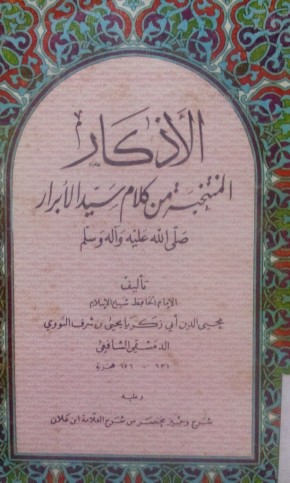 الأذكار
المنتخبة من كلام سيد الأبرار
صلى الله عليه وآله وسلم
تأليف
الإمام الحافظ شيخ الإسلام
محيي الدين أبي زكريا يحيى بن شرف النووي
الدمشقي الشافعي
٦٣١ - ٦٧٦ هجرية
وعليه
شرح وجيز مختصر من شرح العلامة ابن علان